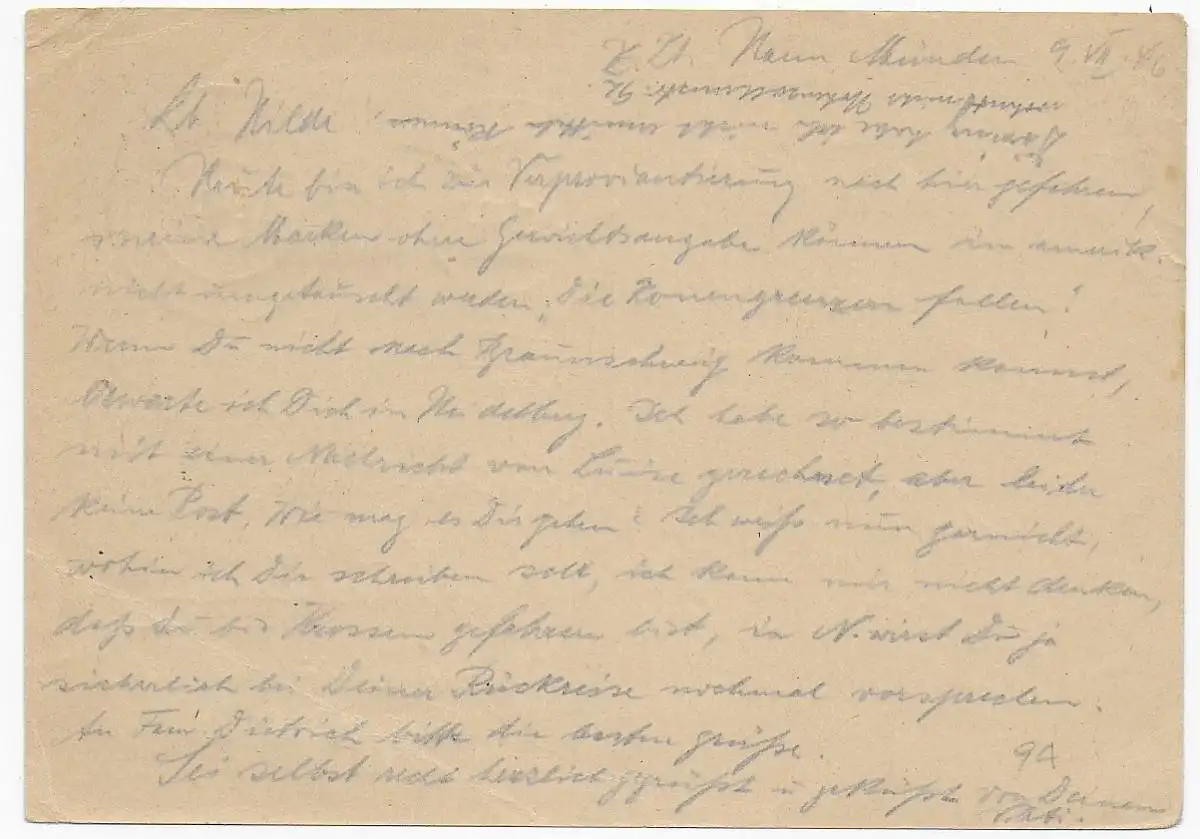 Z. Zt. Hann Münden 9. VII. 46
Lb. Hilde!
habe ich nicht ermitteln können
Heute bin ich zur Verproviantierung nach hier gefahren,
meine Marken ohne Gewichtsangabe können im amerik.
nicht umgetauscht werden, „Die Zonengrenzen fallen!
Wenn Du nicht nach Braunschweig kommen kannst,
erwarte ich Dich in Heidelberg. Ich habe so bestimmt
mit einer Nachricht von Luise gerechnet, aber leider
keine Post. Wie mag es Dir gehen? Ich weiß nun garnicht,
wohin ich Dir schreiben soll, ich kann mir nicht denken,
daß Du bis Krossen gefahren bist, in N. wirst Du ja
sicherlich bei Deiner Rückreise nochmal vorsprechen.
An Fam. Dietrich bitte die besten Grüße.
Sei selbst recht herzlich gegrüßt u geküßt von Deinem
Vati.
9A